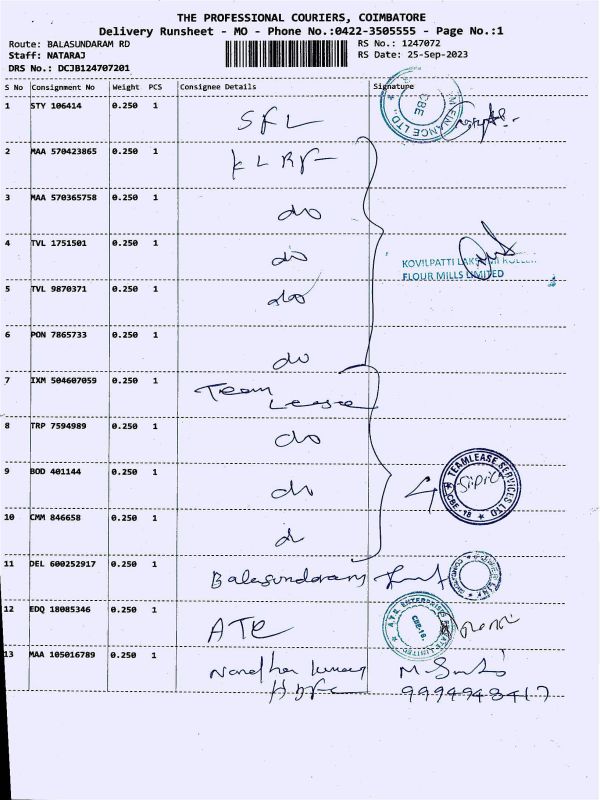 THE PROFESSIONAL COURIERS, COIMBATORE
Delivery Runsheet - MO - Phone No.:0422-3505555 - Page No.:1
Route: BALASUNDARAM RD RS No.: 1247072
Staff: NATARAJ RS Date: 25-Sep-2023
DRS No.: DCJB124707201
S No Consignment No Weight PCS Consignee Details Signature
1 STY 106414 0.250 1 SFL
FINANCE LTD CBE
2 MAA 570423865 0.250 1 KLRF
3 MAA 570365758 0.250 1 do
4 TVL 1751501 0.250 1 do
KOVILPATTI
FLOUR MILLS LIMITED
5 TVL 9870371 0.250 1 do
6 PON 7865733 0.250 1 do
7 IXM 504607059 0.250 1 Team
Lease
8 TRP 7594989 0.250 1 do
9 BOD 401144 0.250 1 do 4
TEAMLEASE SERVICES LTD CBE - 18
10 CMM 846658 0.250 1 d
11 DEL 600252917 0.250 1 Balasundaram
12 EDQ 18085346 0.250 1
ENTERPRISES CBE-18.
13 MAA 105016789 0.250 1 Nandha Kumar
9994948417